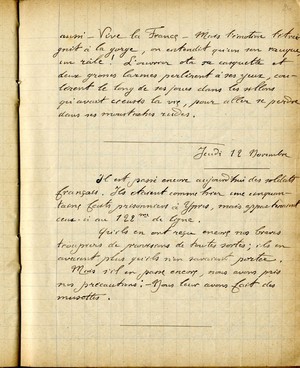 aussi – Vive la France – Mais l'émotion l'étrei-
gnit à la gorge, on entendit qu'un son rauque,
un râle ! L'ouvrier ôta sa casquette et
deux grosses larmes perlèrent à ses yeux, cou-
lèrent le long de ses joues dans les sillons
qu'avait creusés la vie, pour aller se perdre
dans ses moustaches rudes.
Jeudi 12 Novembre
Il est passé encore aujourd'hui des soldats
français. Ils étaient comme hier une cinquan-
taine faits prisonniers à Ypres, mais appartenaient
ceux-ci au 122me de ligne.
Qu'ils en ont reçu encore nos braves
troupiers de provisions de toutes sortes ; ils en
avaient plus qu'ils n'en savaient porter.
Mais s'il en passe encore, nous avons pris
nos précautions : – Nous leur avons fait des
musettes.